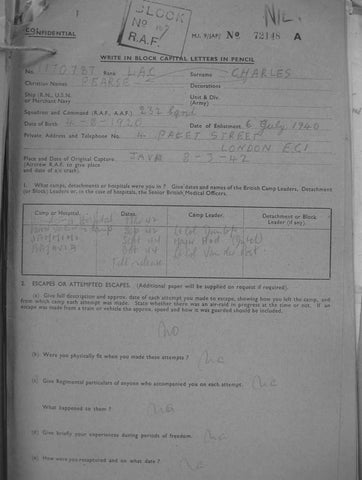 CONFIDENTIAL
BLOCK
No
R.A.F.
NIL.
M.I. 9/JAP/ No 72148 A
WRITE IN BLOCK CAPITAL LETTERS IN PENCIL
No. Rank LAC Surname CHARLES
Christian Names PEARSE Decorations
Ship (R.N., U.S.N. or Merchant Navy Unit & Div. (Army)
Squadron and Command (R.A.F., A.A.F.) 232 Sqnd
Date of Birth 4-8-1920 Date of Enlistment 6 July 1940
Private Address and Telephone No. 4 PAGET STREET
LONDON EC1
Place and Date of Original Capture JAVA 8-3-42
(Aircrew R.A.F. to give place
and date of air crash).
1. What camps, detachments or hospitals were you in? Give dates and names of the British Camp Leaders. Detachment
(or Block) Leaders or, in the case of hospitals, the Senior British Medical Officers.
Camp or Hospital. Dates. Camp Leader. Detachment or Block Leader (if any).
Hospital 42
Camp Lt Col
Sept 44
44 Lt Col Van der Post
Till release
2. ESCAPES OR ATTEMPTED ESCAPES. (Additional paper will be supplied on request if required).
(a) Give full description and approx. date of each attempt you made to escape, showing how you left the camp, and
from which camp each attempt was made. State whether there was an air-raid in progress at the time or not. If an
escape was made from a train or vehicle the approx. speed and how it was guarded should be included.
No
(b) Were you physically fit when you made these attempts? na
(c) Give Regimental particulars of anyone who accompanied you on each attempt. na
What happened to them? na
(d) Give briefly your experiences during periods of freedom. na
(e) How were you recaptured and on what date? na